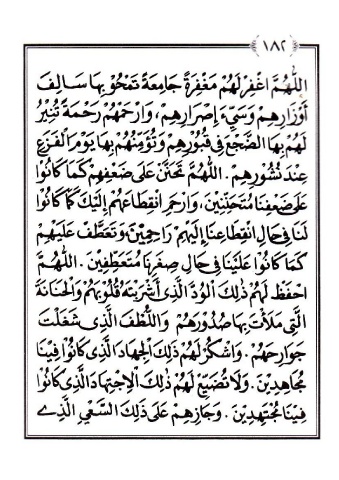 ١٨٢
اللّٰهُمَّ اغْفِرْ لَهُمْ مَغْفِرَةً جَامِعَةً تَمْحُوْ بِهَا سَالِفَ
أَوْزَارِهِمْ وَسَيِّءَ إِصْرَارِهِمْ، وَارْحَمْهُمْ رَحْمَةً تُنِيْرُ
لَهُمْ بِهَا الضَّجْعَ فِى قُبُوْرِهِمْ وَتُؤَمِّنُهُمْ بِهَا يَوْمَ الْفَزَعِ
عِنْدَ نُشُوْرِهِمْ. اللّٰهُمَّ تَحَنَّنْ عَلَى ضَعْفِهِمْ كَمَا كَانُوْا
عَلَى ضَعْفِنَا مُتَحَنِّنِيْنَ، وَارْحَمِ انْقِطَاعَهُمْ إِلَيْكَ كَمَا كَانُوْا
لَنَا فِى حَالِ انْقِطَاعِنَا إِلَيْهِمْ رَاحِمِيْنَ، وَتَعَطَّفْ عَلَيْهِمْ
كَمَا كَانُوْا عَلَيْنَا فِى حَالِ صِغَرِنَا مُتَعَطِّفِيْنَ. اللّٰهُمَّ
احْفَظْ لَهُمْ ذٰلِكَ الْوُدَّ الَّذِى أَشْرَبْتَهُ قُلُوْبَهُمْ وَالْحَنَانَةَ
الَّتِى مَلَأْتَ بِهَا صُدُوْرَهُمْ وَاللُّطْفَ الَّذِى شَغَلْتَ
جَوَارِحَهُمْ. وَاشْكُرْ لَهُمْ ذٰلِكَ الْجِهَادَ الَّذِى كَانُوْا فِيْنَا
مُجَاهِدِيْنَ. وَلَا تُضَيِّعْ لَهُمْ ذٰلِكَ الْاِجْتِهَادَ الَّذِى كَانُوْا
فِيْنَا مُجْتَهِدِيْنَ. وَجَازِهِمْ عَلَى ذٰلِكَ السَّعْيِ الَّذِى